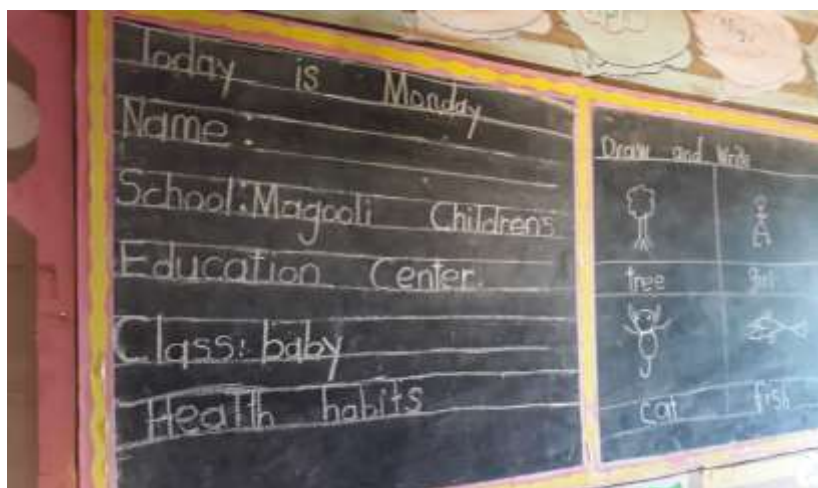 Today is Monday
Name:
School: Magooli Childrens
Education Center.
Class: baby
Health habits
Draw and Write
tree girl
cat fish